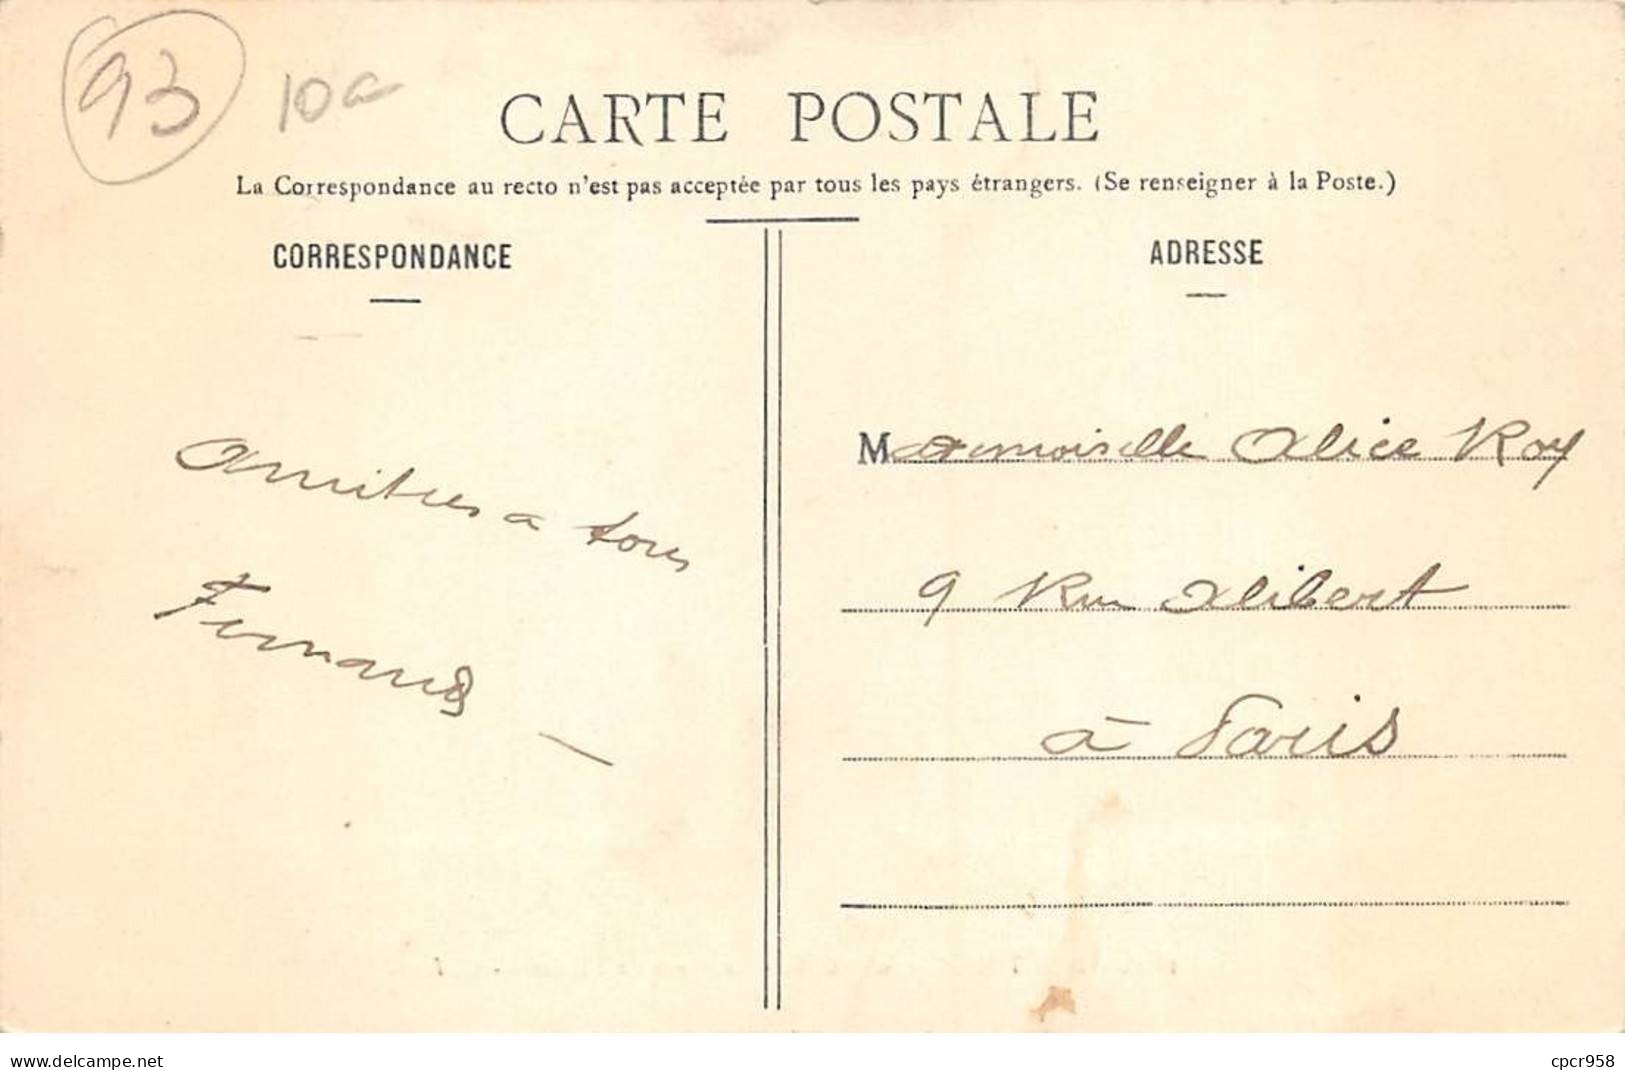 93 10a
CARTE POSTALE
La Correspondance au recto n'est pas acceptée par tous les pays étrangers. (Se renseigner à la Poste.)
CORRESPONDANCE
amitiés a tous
Fernand
ADRESSE
Mademoiselle Alice Roy
9 Rue Alibert
à Paris
www.delcampe.net
cpcr958